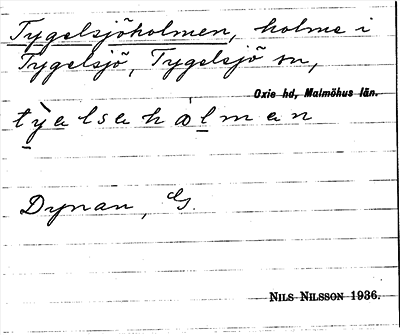 Tygelsjöholmen, holme i
Tygelsjö, Tygelsjö sn,
Oxie hd, Malmöhus län.
Dynan, G.
NILS NILSSON 1936.